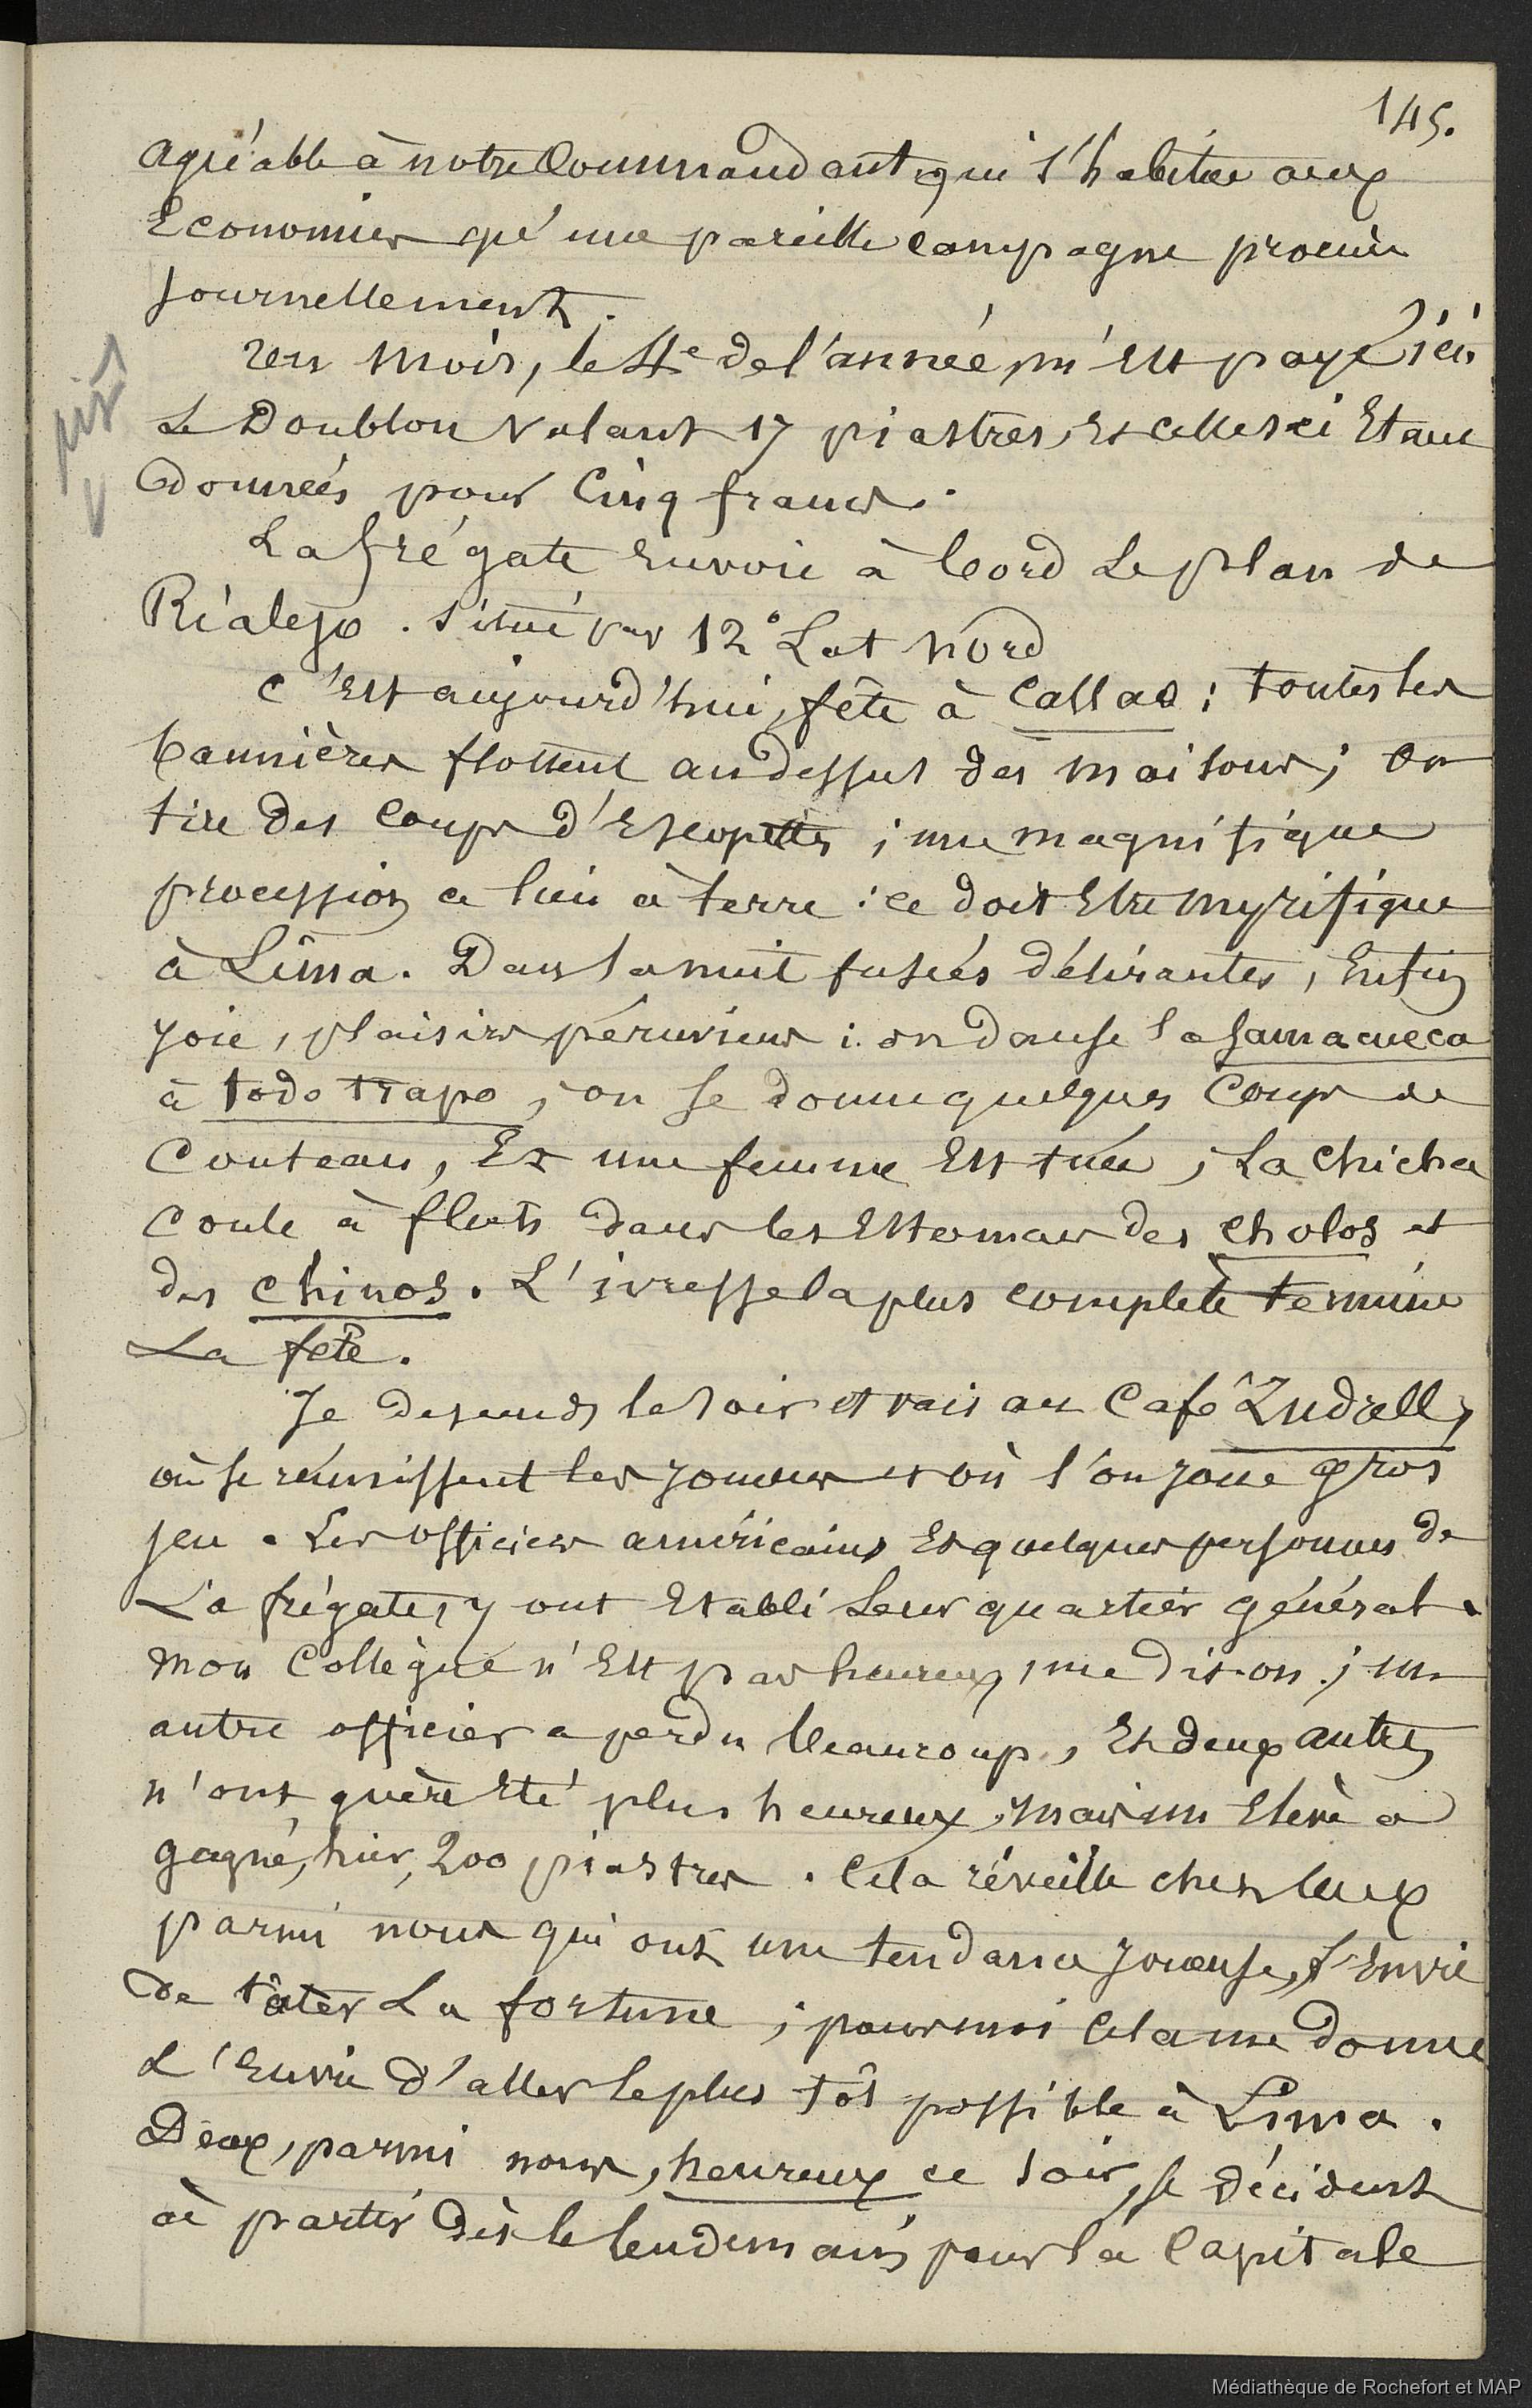 145.
agréable à notre Commandant, qui s'habitue aux
Economies qu'une pareille campagne procure
journellement.
un mois, le 4e de l'année, m'est payé ici
Le Doublon valant 17 piastres, Et celles ci Etant
données pour Cinq francs.
La frégate Envoie à bord Le plan de
Réalejo. situé par 12° Lat Nord
C'Est aujourd'hui, fête à Callao : toutes les
bannières flottent au dessus des maisons ; on
tire des coups d'Escopettes ; une magnifique
procession a lieu à terre : ce doit Etre myrifique
à Lima. Dans la nuit fusées délirantes, Enfin
joie, plaisirs péruviens : on danse la Samacueca
à todo trapo, on se donne quelques Coups de
Couteau, Et une femme Est tuée ; La chicha
coule à flots dans les Estomacs des cholos et
des chinos. L'ivresse la plus complète termine
La fête.
Je descends le soir et vais au Café
où se réunissent les joueurs et où l'on joue gros
jeu. Les officiers américains Et quelques personnes de
La frégate, y ont Etabli Leur quartier général.
Mon Collègue n'Est pas heureux, me dit-on ; un
autre officier a perdu beaucoup, Et deux autres
n'ont guère Eté plus heureux, mais un Elève a
gagné, hier, 200 piastres. Cela réveille chez ceux
parmi nous qui ont une tendance joueuse, l'Envie
de tâter La fortune ; pour moi Cela me donne
L'Envie d'aller le plus tôt possible à Lima.
Deux, parmi nous, heureux ce soir, se décident
à partir dès le lendemain pour la Capitale
Médiathèque de Rochefort et MAP